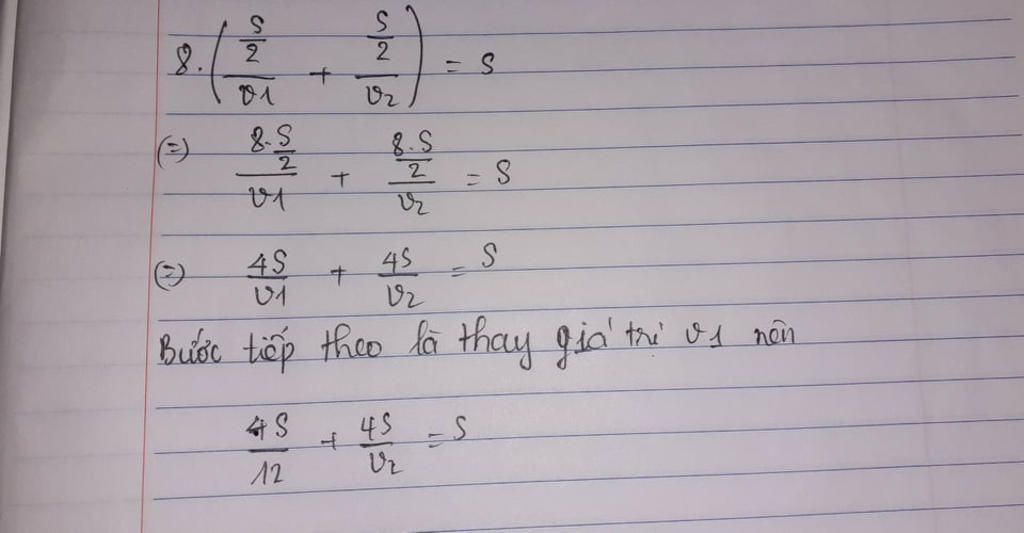 8.((S/2)/v1 + (S/2)/v2) = S
(=) (8.S/2)/v1 + (8.S/2)/v2 = S
(=) 4S/v1 + 4S/v2 = S
Bước tiếp theo là thay giá trị v1 nên
4S/12 + 4S/v2 = S